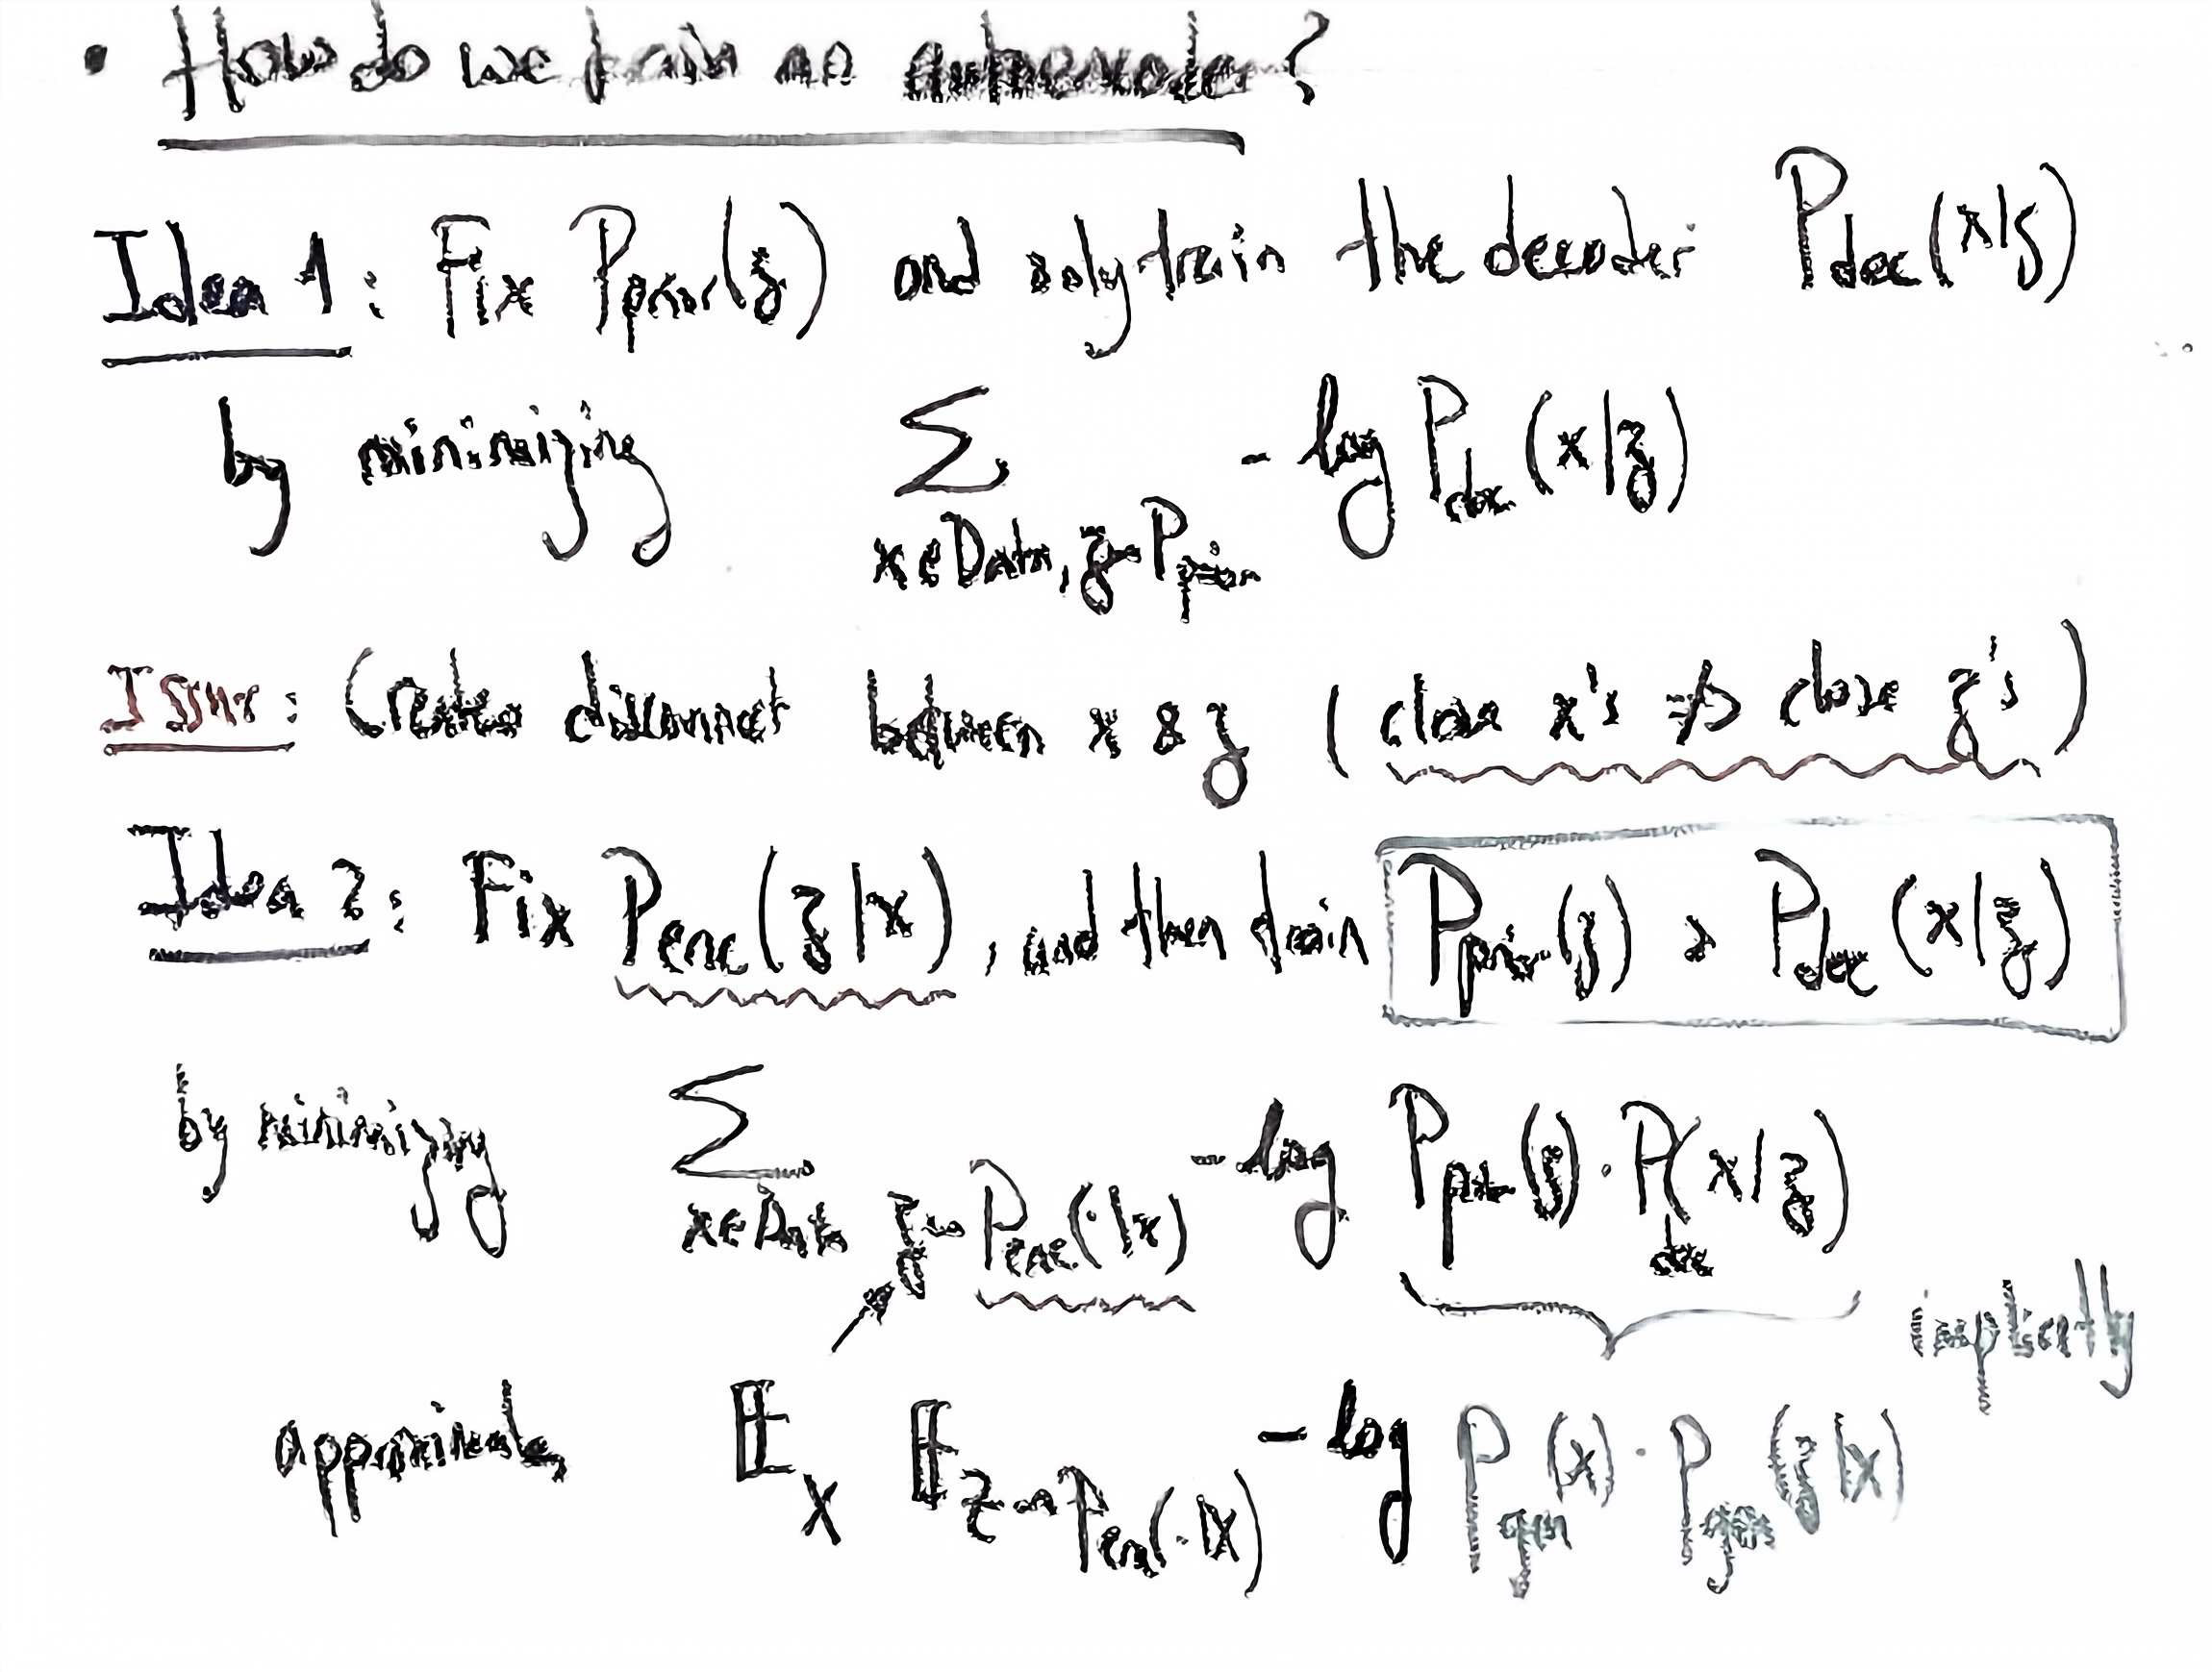 • How do we train an autoencoder?
Idea 1: Fix P_prior(z) and only train the decoder P_dec(x|z)
by minimizing ∑_{x∈Data, z~P_prior} - log P_dec(x|z)
Issue: Creates disconnect between x & z (close x's ⇏ close z's)
Idea 2: Fix P_enc(z|x), and then train P_prior(z) & P_dec(x|z)
by minimizing ∑_{x∈Data, z~P_enc(·|x)} - log P_prior(z) · P_dec(x|z)
implicitly
approximates E_x E_{z~P_enc(·|x)} - log P_gen(x) · P_gen(z|x)